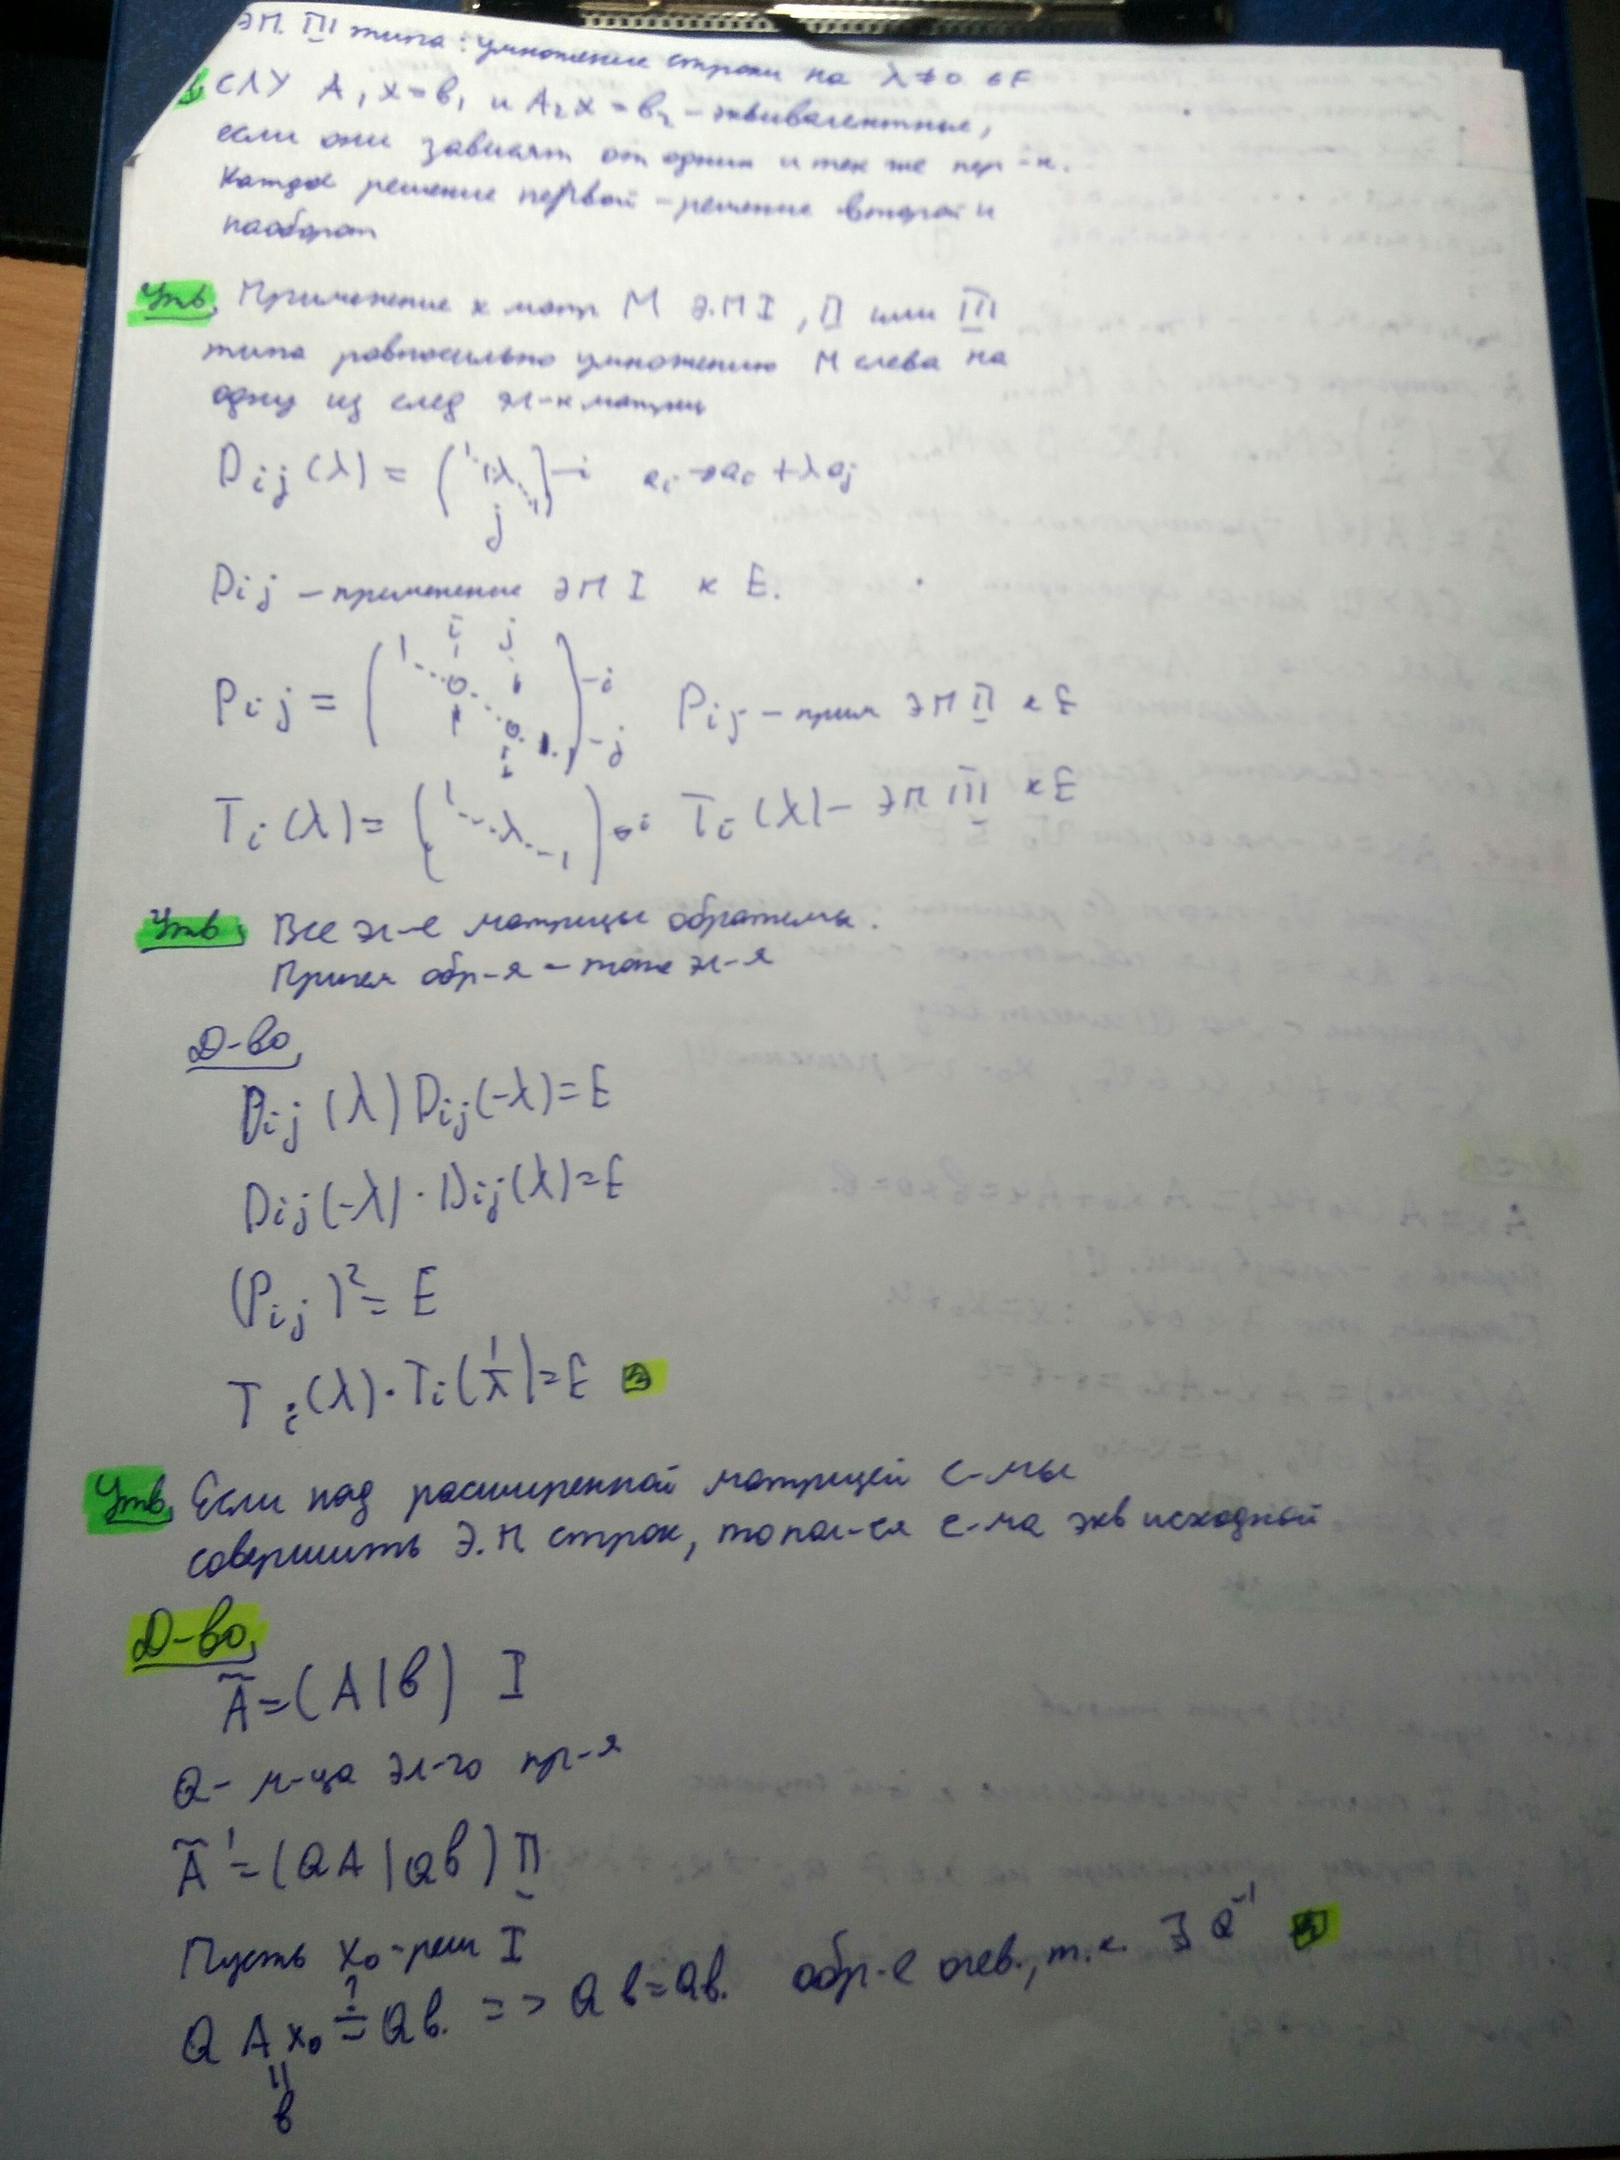 Э.П. III типа: умножение строки на λ≠0 ∈F
СЛУ A₁x=b₁ и A₂x=b₂ – эквивалентные,
если они зависят от одних и тех же пер-х.
Каждое решение первой – решение второй и
наоборот
Утв. Применение к матр М Э.П I, II или III
типа равносильно умножению М слева на
одну из след эл-х матриц
Dij(λ) = (1 1 λ 1) – i aᵢ → aᵢ + λaⱼ
j
Dij – применение ЭП I к E.
i j
Pij = (1 0 1 1 0 1) – i – j Pij – прим ЭП II к E
Ti(λ) = (1 λ 1) – i Ti(λ) – ЭП III к E
Утв. Все эл-е матрицы обратимы.
Причем обр-я – тоже эл-я
Д-во
Dij(λ)Dij(-λ)=E
Dij(-λ)·Dij(λ)=E
(Pij)²=E
Ti(λ)·Ti(1/λ)=E
Утв. Если над расширенной матрицей с-мы
совершить Э.П. строк, то пол-ся с-ма экв исходной
Д-во
Ã=(A|b) I
Q – м-ца эл-го пр-я
Ã'=(QA|Qb) II
Пусть x₀ – реш I
?
QAx₀ = Qb. => Qb=Qb. обр-е очев., т.к. ∃ Q⁻¹
||
b